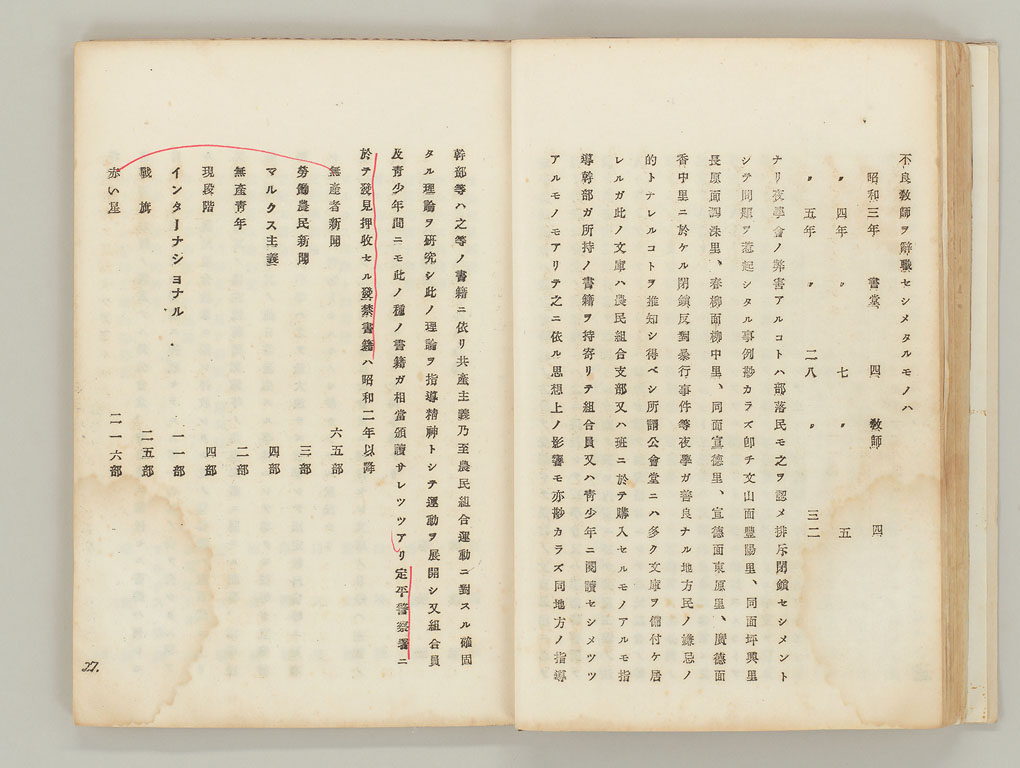 不良敎師ヲ辭職セシメタルモノハ
昭和三年 書堂 四 敎師 四
〃 四年 〃 七 〃 五
〃 五年 〃 二八 〃 三二
ナリ夜學會ノ弊害アルコトハ部落民モ之ヲ認メ排斥閉鎖セシメント
シテ問題ヲ惹起シタル事例尠カラズ卽チ文山面豐陽里、同面坪興里
長原面洞洙里、春柳面柳中里、同面宣德里、宣德面東原里、廣德面
香中里ニ於ケル閉鎖反對暴行事件等夜學ガ善良ナル地方民ノ嫌忌ノ
的トナレルコトヲ推知シ得ベシ所謂公會堂ニハ多ク文庫ヲ備付ケ居
レルガ此ノ文庫ハ農民組合支部又ハ班ニ於テ購入セルモノアルモ指
導幹部ガ所持ノ書籍ヲ持寄リテ組合員又ハ靑少年ニ閱讀セシメツツ
アルモノモアリテ之ニ依ル思想上ノ影響モ亦尠カラズ同地方ノ指導
幹部等ハ之等ノ書籍ニ依リ共產主義乃至農民組合運動ニ對スル確固
タル理論ヲ硏究シ此ノ理論ヲ指導精神トシテ運動ヲ展開シ又組合員
及靑少年間ニモ此ノ種ノ書籍ガ相當頒讀サレツツアリ定平警察署ニ
於テ發見押收セル發禁書籍ハ昭和二年以降
無產者新聞 六五部
勞働農民新聞 三部
マルクス主義 四部
無產靑年 二部
現段階 四部
インターナショナル 一一部
戰旗 二五部
赤い星 二一六部
27.